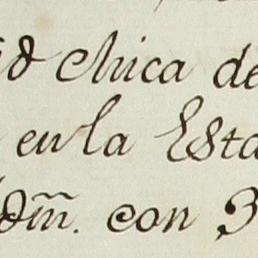 d Chica de
en la Esta
Dm̃. con 3